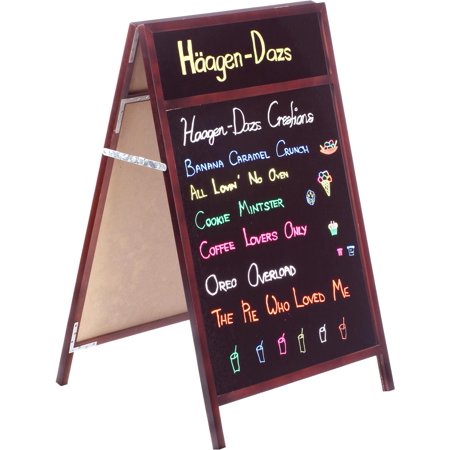 Häagen-Dazs
Haagen-Dazs Creations
BANANA CARAMEL CRUNCH
ALL LOVIN' NO OVEN
COOKIE MINTSTER
COFFEE LOVERS ONLY
OREO OVERLOAD
THE PIE WHO LOVED ME